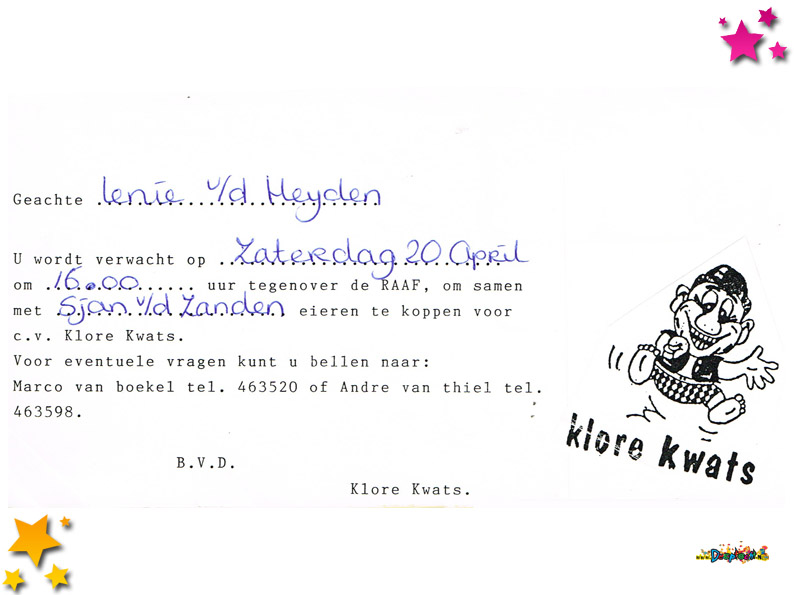 Geachte Ienie v/d Heyden
U wordt verwacht op Zaterdag 20 April
om 16.00 uur tegenover de RAAF, om samen
met Sjan v/d Zanden eieren te koppen voor
c.v. Klore Kwats.
Voor eventuele vragen kunt u bellen naar:
Marco van boekel tel. 463520 of Andre van thiel tel.
463598.
B.V.D.
Klore Kwats.
klore Kwats